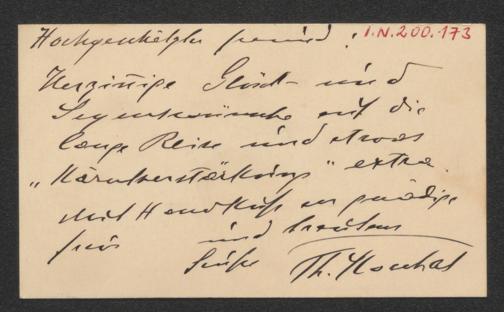 Hochgeschätzter Freund!
I.N. 200.173
Herzinnige Glück- und
Segenswünsche auf die
lange Reise und etwas
„Kärntverstärkings" extra.
Mit Handkuß an gnädige
Frau und treuem
Gruße Th. Koschat